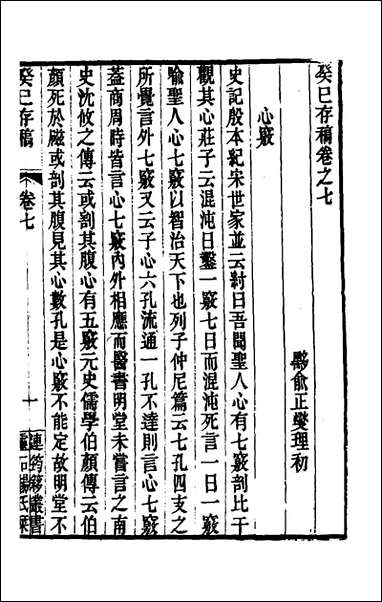 癸巳存稿卷之七
黟俞正燮理初
心竅
史記殷本紀宋世家並云紂曰吾聞聖人心有七竅剖比干
觀其心莊子云混沌日鑿一竅七日而混沌死言一日一竅
喻聖人心七竅以智治天下也列子仲尼篇云七孔四支之
所覺言外七竅又云子心六孔流通一孔不達則言心七竅
蓋商周時皆言心七竅內外相應而醫書明堂未嘗言之南
史沈攸之傳云或剖其腹心有五竅元史儒學伯顏傳云伯
顏死於磁或剖其腹見其心數孔是心竅不能定故明堂不
癸巳存稿
卷七
十
連筠簃叢書
靈石楊氏栞